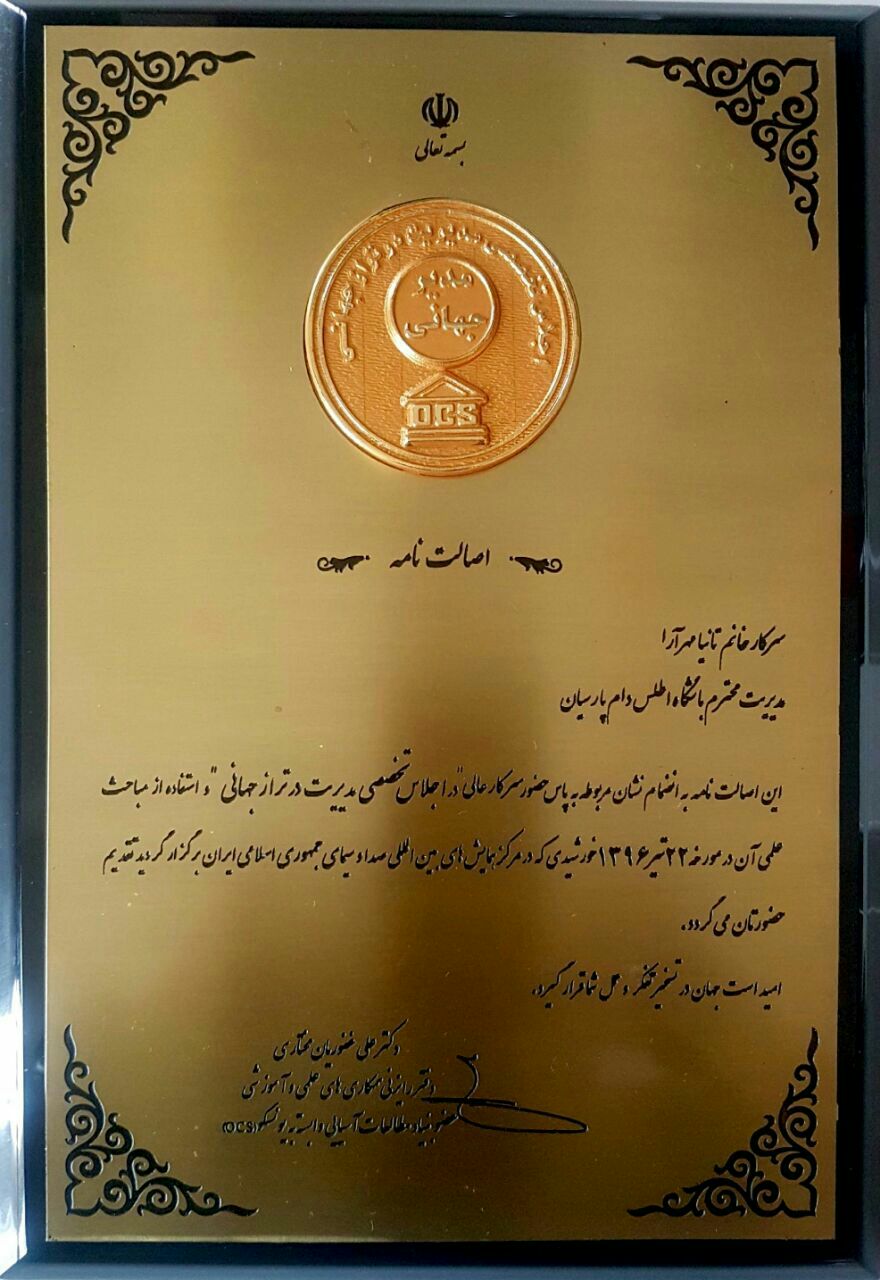 بسمه تعالی
اجلاس تخصصی مدیریت در تراز جهانی
مدیر
جهانی
OCS
اصالت نامه
سرکار خانم تانیا مهرآرا
مدیریت محترم باشگاه اطلس دام پارسیان
این اصالت نامه به انضمام نشان مربوطه به پاس حضور سرکار عالی "در اجلاس تخصصی مدیریت در تراز جهانی" و استفاده از مباحث
علمی آن در مورخه ۲۲ تیر ۱۳۹۶ خورشیدی که در مرکز همایش های بین المللی صدا و سیمای جمهوری اسلامی ایران برگزار گردید تقدیم
حضورتان می گردد.
امید است جهان در تسخیر تفکر و عمل شما قرار گیرد.
دکتر علی غفوریان
دفتر رایزنی همکاری های علمی و آموزشی
عضو بنیاد مطالعات آسیایی وابسته به یونسکو (OCS)